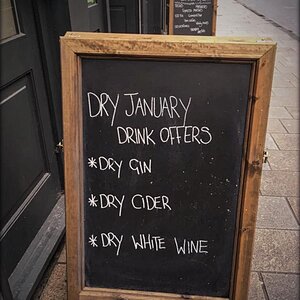 DRY JANUARY
DRINK OFFERS
*DRY GIN
*DRY CIDER
*DRY WHITE WINE